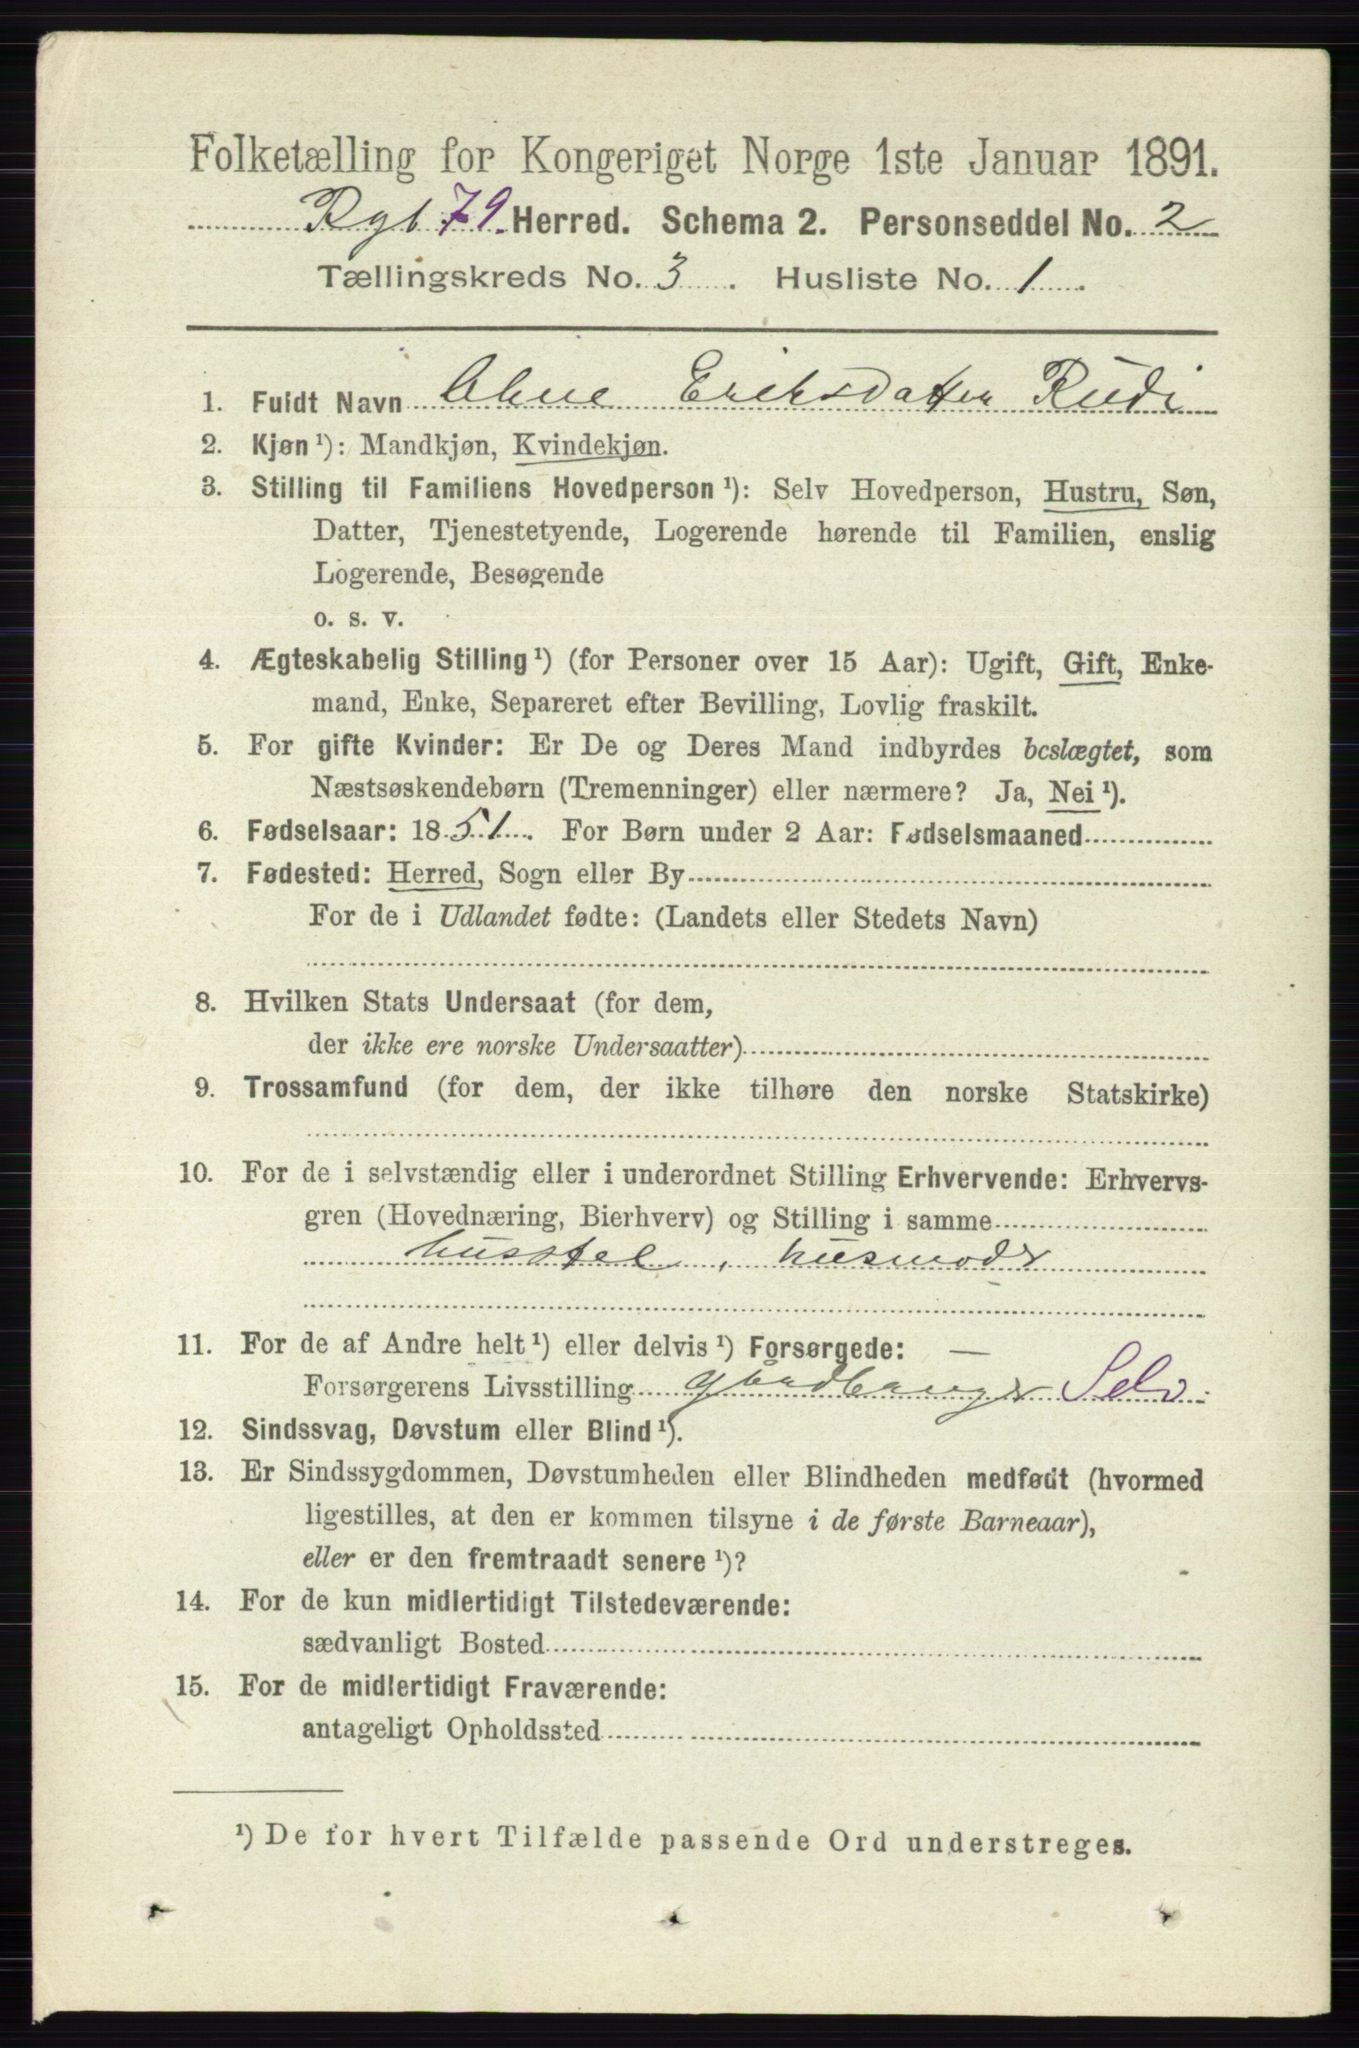 Folketælling for Kongeriget Norge 1ste Januar 1891.
Rgb 79 Herred. Schema 2. Personseddel No. 2
Tællingskreds No. 3. Husliste No. 1.
1. Fuldt Navn Ahne Eriksdatter Rudi
2. Kjøn ¹): Mandkjøn, Kvindekjøn.
3. Stilling til Familiens Hovedperson ¹): Selv Hovedperson, Hustru, Søn,
Datter, Tjenestetyende, Logerende hørende til Familien, enslig
Logerende, Besøgende
o. s. v.
4. Ægteskabelig Stilling ¹) (for Personer over 15 Aar): Ugift, Gift, Enke-
mand, Enke, Separeret efter Bevilling, Lovlig fraskilt.
5. For gifte Kvinder: Er De og Deres Mand indbyrdes beslægtet, som
Næstsøskendebørn (Tremenninger) eller nærmere? Ja, Nei ¹).
6. Fødselsaar: 1851. For Børn under 2 Aar: Fødselsmaaned
7. Fødested: Herred, Sogn eller By
For de i Udlandet fødte: (Landets eller Stedets Navn)
8. Hvilken Stats Undersaat (for dem,
der ikke ere norske Undersaatter)
9. Trossamfund (for dem, der ikke tilhøre den norske Statskirke)
10. For de i selvstændig eller i underordnet Stilling Erhvervende: Erhvervs-
gren (Hovednæring, Bierhverv) og Stilling i samme
husstel, husmoder
11. For de af Andre helt ¹) eller delvis ¹) Forsørgede: —
Forsørgerens Livsstilling Selv.
12. Sindssvag, Døvstum eller Blind ¹).
13. Er Sindssygdommen, Døvstumheden eller Blindheden medfødt (hvormed
ligestilles, at den er kommen tilsyne i de første Barneaar),
eller er den fremtraadt senere ¹)?
14. For de kun midlertidigt Tilstedeværende:
sædvanligt Bosted
15. For de midlertidigt Fraværende:
antageligt Opholdssted
¹) De for hvert Tilfælde passende Ord understreges.